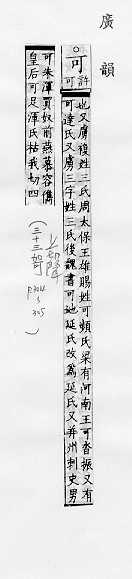 廣韻
可 許也又虜複姓三氏周太保王雄賜姓可頻氏梁有河南王可沓振又有
可達氏又虜三字姓三氏後魏書可地延氏改爲延氏又并州刺史男
可朱渾買奴前燕慕容儁
皇后可足渾氏枯我切四
上聲
(三十三哿)
P304
305